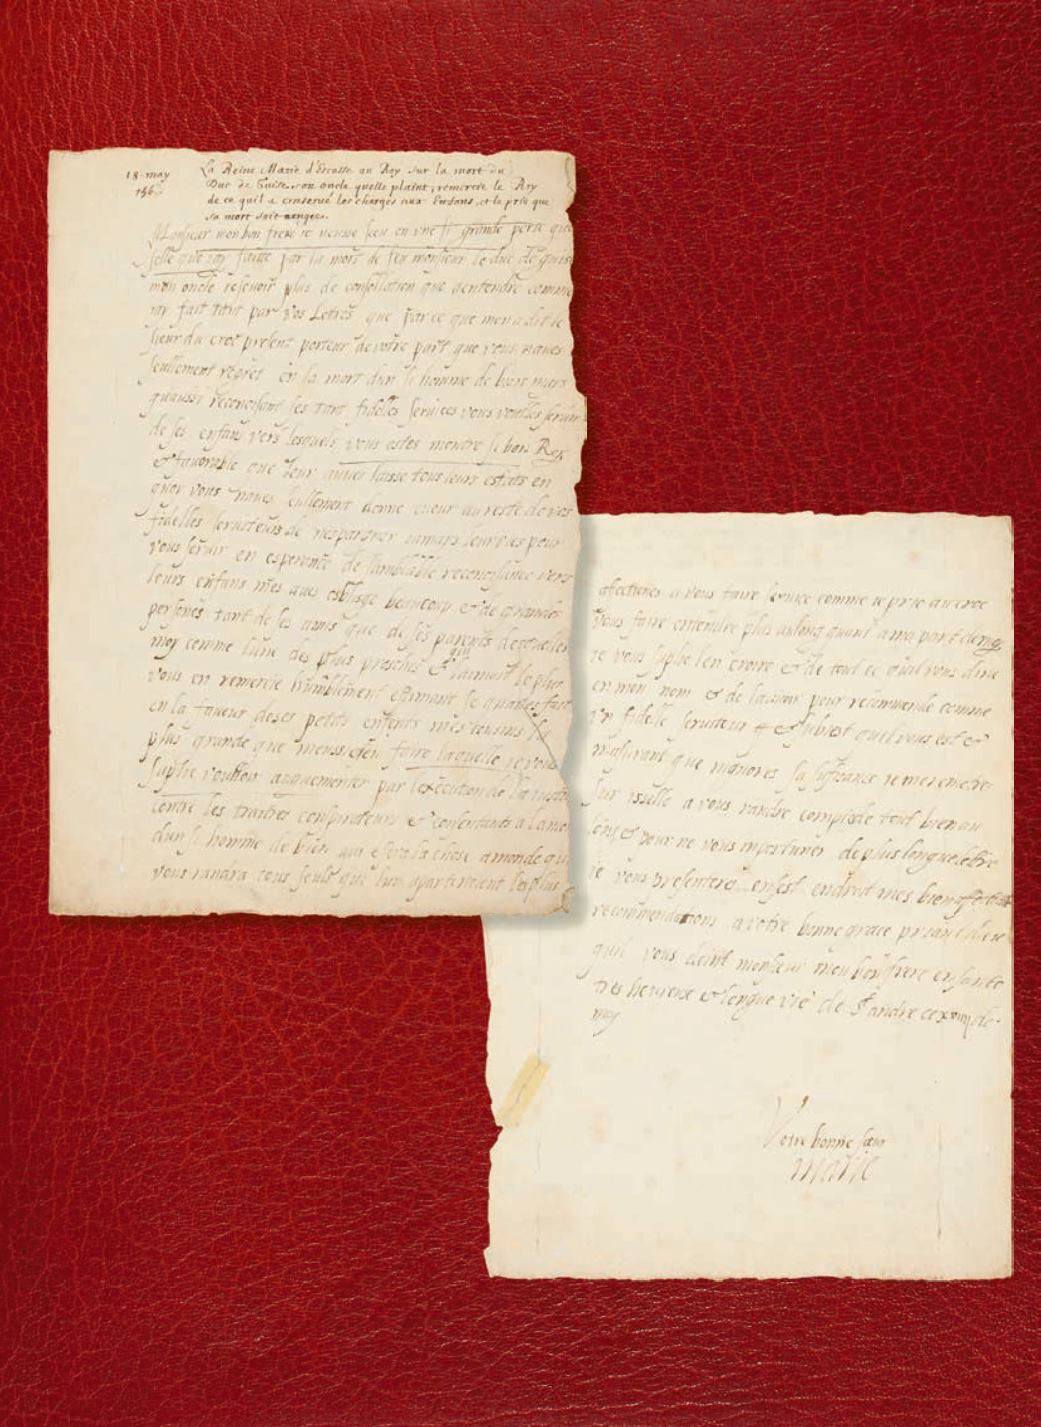 18. may
156
La Reine Marie d'Escosse au Roy sur la mort du
Duc de Guise son oncle quelle plaint, remercie le Roy
de ce quil a conservé les charges aux Enfans, et le prie que
sa mort soit vengee.
Monsieur mon bon frere ie neusse sceu en vne si grande perte que
selle que iay faitte par la mort de feu monsieur le duc de guise
mon oncle resevoir plus de consollation que dentendre comme
iay fait tant par vos Letres que par ce que men a dit le
sieur du croc present porteur de votre part que vous naves
seullement regret en la mort dun si homme de bien mays
quaussi reconoisant ses tant fidelles services vous voulles servir
de ses enfans vers lesquels vous estes montre si bon Roy
& favorable que leur avoir laisse tous leurs estats en
quoy vous naves seullement donne cueur au reste de vos
fidelles serviteurs de nespargner iamays leur vies pour
vous servir en esperance de samblable reconoisance vers
leurs enfans mes aves osblige beaucoup & de grandes
personnes tant de ses amis que de ses parents desquelles
moy comme lune des plus prosches & qui laimoit le plus
vous en remercie humblement estimant se quaves fait
en la faveur de ses petits enfents mes cousins
plus grande que meussies feu faire laquelle ie vous
suplie voulloir augmenter par lexecution de la iustice
contre les traitres conspirateurs & consentants a la mort
dun si homme de bien qui sera la chose a monde qui
vous randra tous seuls que luy aparteroient les plus
afectionés a vous faire service comme ie prie au croc
vous faire entendre plus au long quant a ma part de moy
ie vous suplie len croire & de tout ce quil vous dira
en mon nom & de lavoir pour recomende comme
vn fidelle serviteur & subiest quil vous est &
masurant que nignores sa sufisance ie me remetre
sur isselle a vous randre comptde tout bien au
long & pour ne vous importuner de plus longue letre
ie vous presenteres en sest endroit mes bien afectionees
recommendations a votre bonne grace priant dieu
quil vous doint monsieur mon bon frere en sante
tres heureuse & longue vie de St andre ce xviii de
may
Votre bonne sœur
Marie